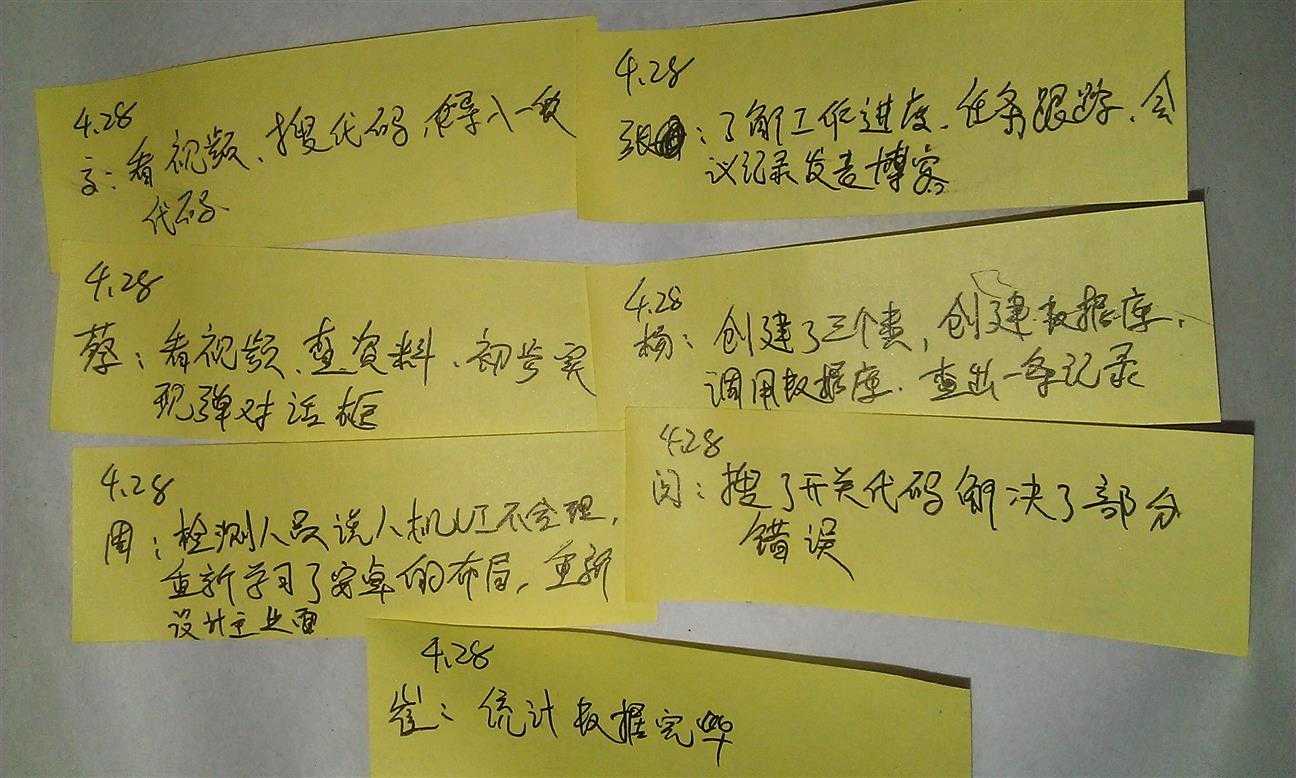 4.28
文：看视频、搜代码，导入一致
代码、
4.28
张：了解工作进度、任务跟踪、会
议记录发表博客
4.28
蔡：看视频、查资料、初步实
现弹对话框
4.28
杨：创建了三个类，创建数据库、
调用数据库、查出一条记录
4.28
周：检测人员说人机UI不合理，
重新学习了安卓的布局，重新
设计主界面
4.28
闫：搜了开关代码解决了部分
错误
4.28
崔：统计数据完毕